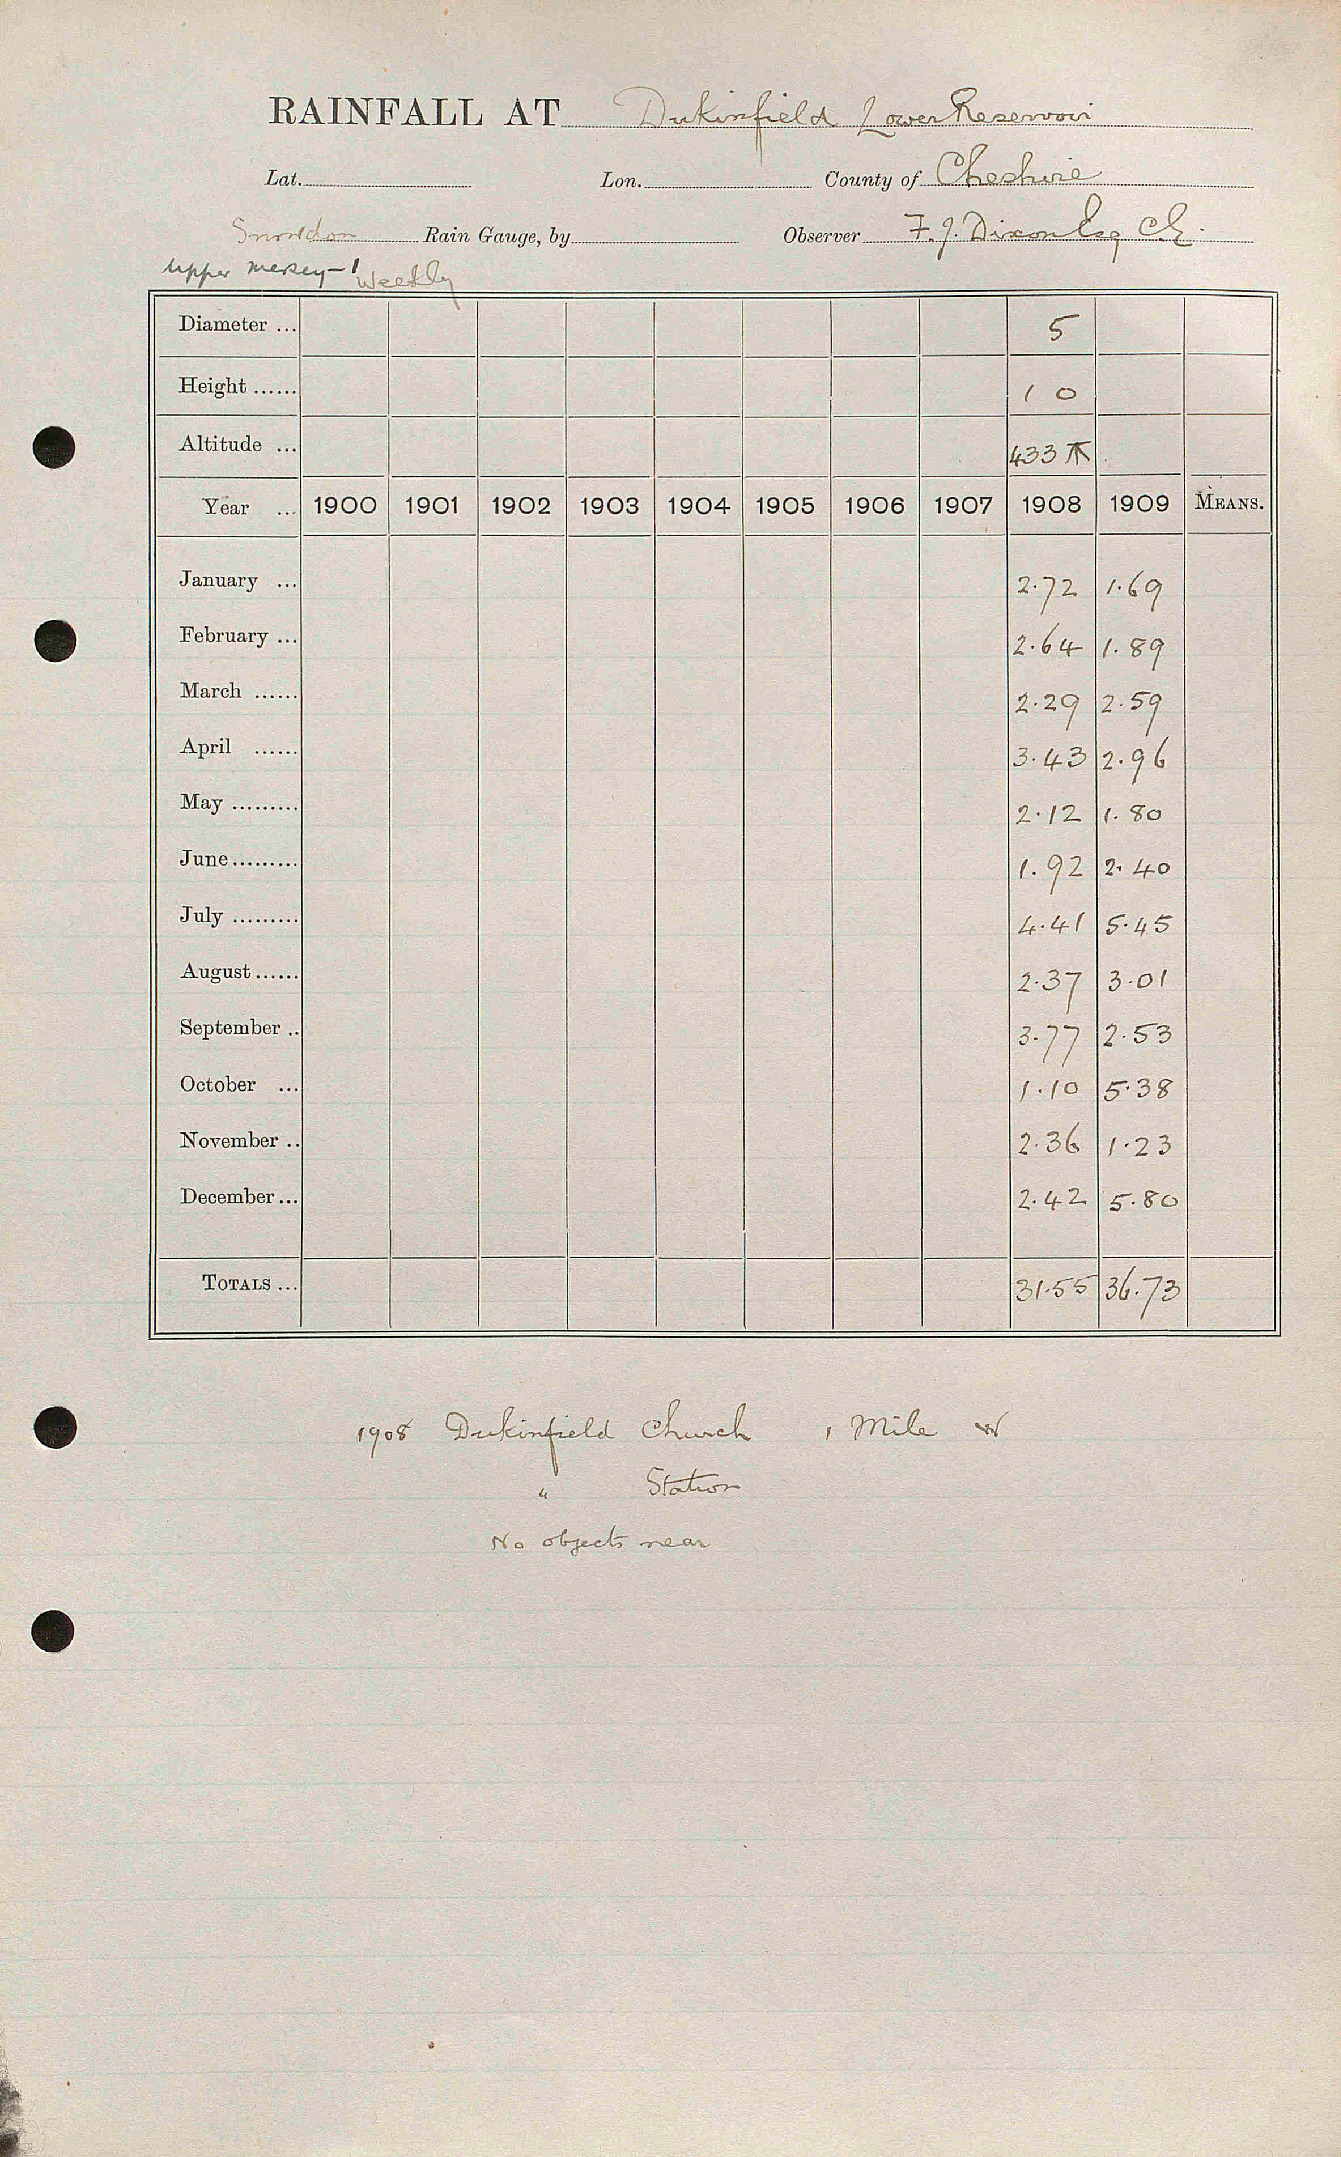 RAINFALL AT Dukinfield Lower Reservoir
Lat. Lon. County of Cheshire
Snowdon Rain Gauge, by Observer F. J. Dixon Esq CE.
Upper Mersey-1 Weekly
Diameter ... 5
Height ...... 1 0
Altitude ... 433
Year ... 1900 1901 1902 1903 1904 1905 1906 1907 1908 1909 MEANS.
January ... 2.72 1.69
February ... 2.64 1.89
March ...... 2.29 2.59
April ...... 3.43 2.96
May ......... 2.12 1.80
June ......... 1.92 2.40
July ......... 4.41 5.45
August ...... 2.37 3.01
September .. 3.77 2.53
October ... 1.10 5.38
November .. 2.36 1.23
December ... 2.42 5.80
TOTALS ... 31.55 36.73
1908 Dukinfield Church 1 Mile W
" Station
No objects near